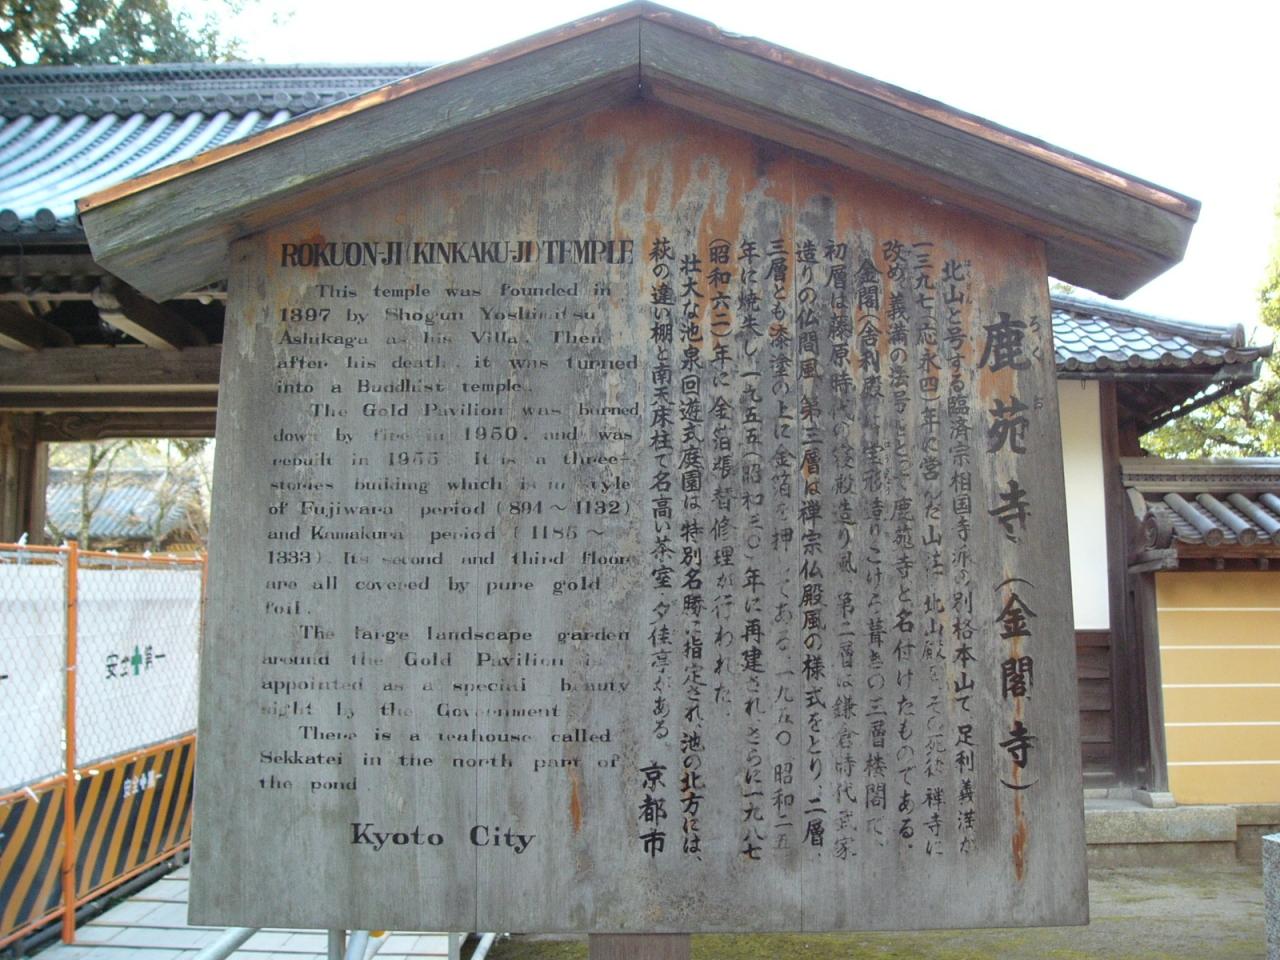 ROKUON-JI (KINKAKU-JI) TEMPLE
This temple was founded in
1397 by Shogun Yoshimitsu
Ashikaga as his Villa. Then
after his death, it was turned
into a Buddhist temple.
The Gold Pavilion was burned
down by fire in 1950, and was
rebuilt in 1955. It is a three-
stories building which is in style
of Fujiwara period (894～1132)
and Kamakura period (1185～
1333). Its second and third floor
are all covered by pure gold
foil.
The large landscape garden
around the Gold Pavilion is
appointed as a special beauty
sight by the Government
There is a teahouse called
Sekkatei in the north part of
the pond
Kyoto City
鹿苑寺（金閣寺）
ろくおん
北山と号する臨済宗相国寺派の別格本山で、足利義満が
一三九七（応永四）年に営んだ山荘 北山殿を、その死後 禅寺に
改め、義満の法号にとって鹿苑寺と名付けたものである。
金閣（舎利殿）は 宝形造りこけら葺きの三層楼閣で、
初層は藤原時代の寝殿造り風、第二層は鎌倉時代 武家
造りの仏間風、第三層は禅宗仏殿風の様式をとり、二層、
三層とも漆塗の上に金箔を押してある。一九五〇（昭和二五）
年に焼失し、一九五五（昭和三〇）年に再建され、さらに一九八七
（昭和六二）年に金箔張替修理が行われた。
壮大な池泉回遊式庭園は特別名勝に指定され、池の北方には、
萩の違い棚と南天床柱で名高い茶室・夕佳亭がある。
京都市
安全第一
安全第一